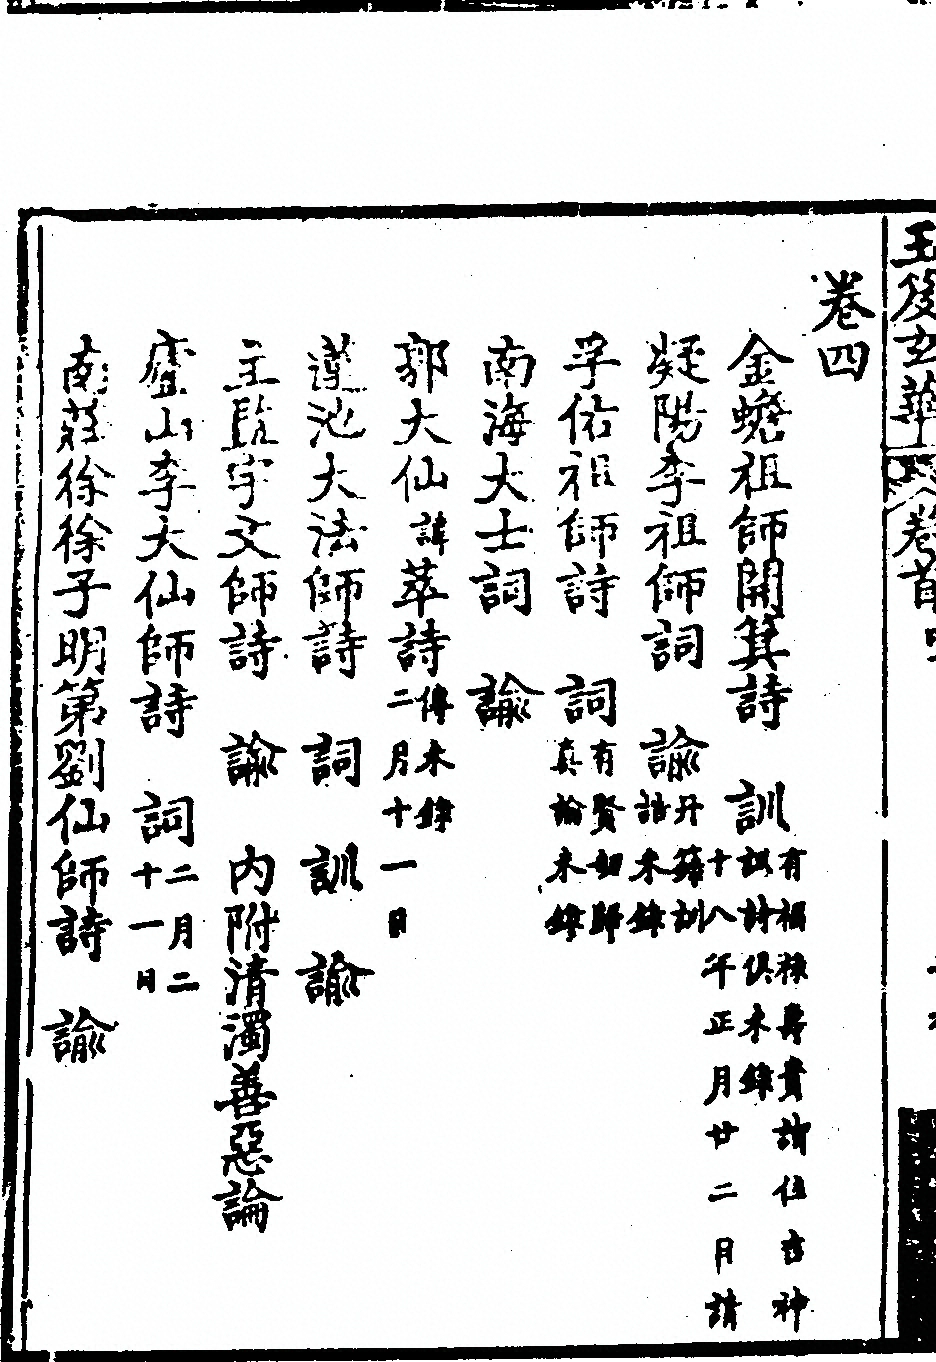 卷四
金蟾祖師開箕詩 訓 有福祿壽貴諸位吉神訓詩俱未錄 十八年正月廿二月請
凝陽李祖師詞 諭 升籍訓誥未錄
孚佑祖師詩 詞 有賢如歸真論未錄
南海大士詞 諭
郭大仙諱萃詩 傳未錄 二月十一日
蓮池大法師詩 詞 訓 諭
主監宇文師詩 諭 內附清濁善惡論
廬山李大仙師詩 詞 二月二十一日
南莊徐徐子明第劉仙師詩 諭